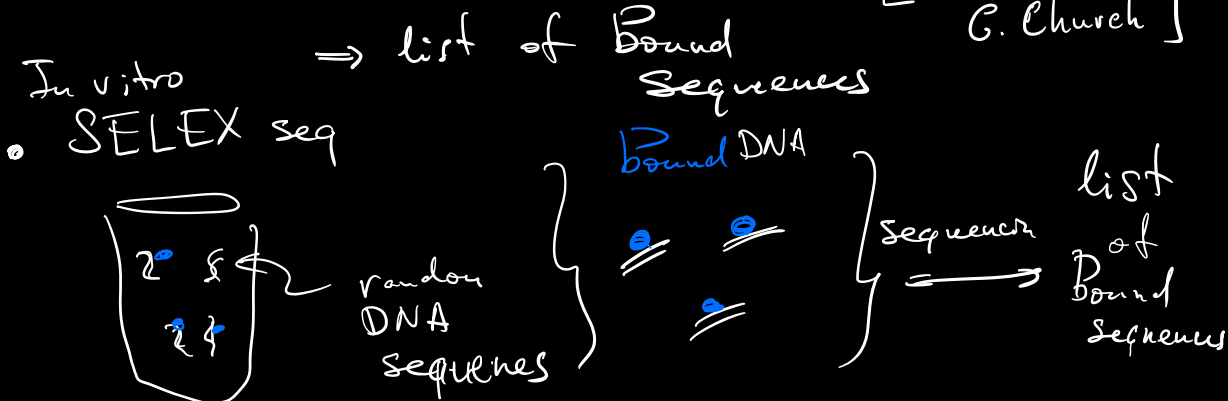 G. Church ]
⇒ list of Bound
Sequences
In vitro
• SELEX seq
Bound DNA
random
DNA
sequenes
sequencin
list
of
Bound
sequences